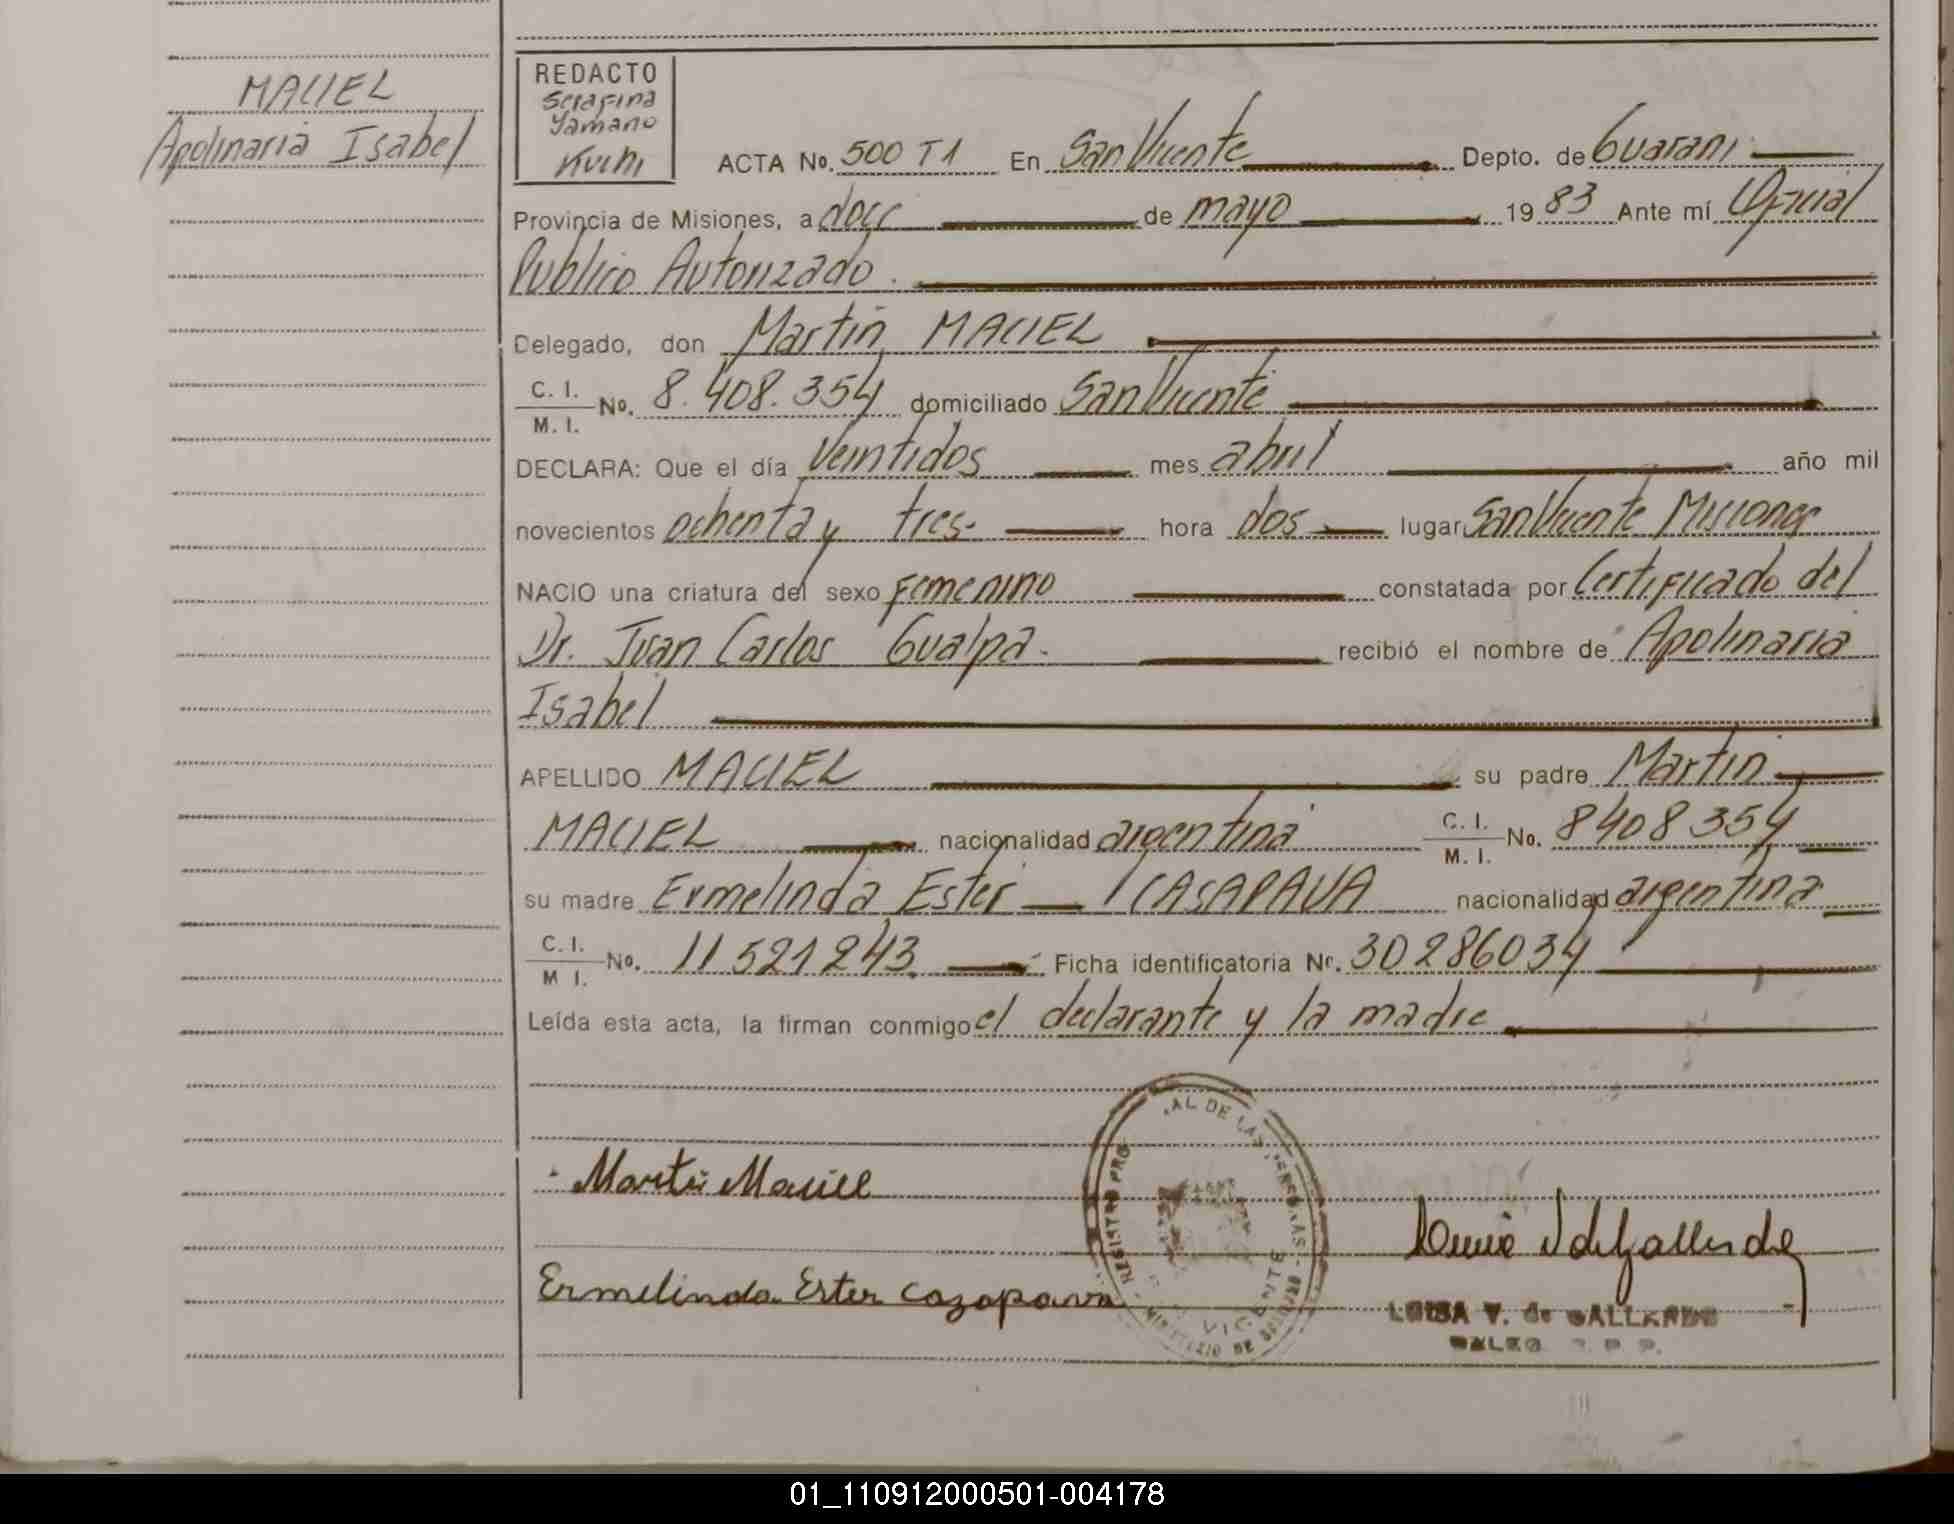 MACIEL
Apolinaria Isabel
REDACTO
Serafina
Yamano
Kuchi
ACTA No. 500 T1 En San Vicente Depto. de Guarani
Provincia de Misiones, a doce de mayo 19 83 Ante mí Oficial
Publico Autorizado.
Delegado, don Martin MACIEL
C. I. / M. I. No. 8.408.354 domiciliado San Vicente
DECLARA: Que el día Veintidos mes abril año mil
novecientos ochenta y tres- hora dos lugar San Vicente Misiones
NACIO una criatura del sexo femenino constatada por Certificado del
Dr. Juan Carlos Gualpa. recibió el nombre de Apolinaria
Isabel
APELLIDO MACIEL su padre Martin
MACIEL nacionalidad argentina C. I. / M. I. No. 8408354
su madre Ermelinda Ester CASAPAVA nacionalidad argentina
C. I. / M I. No. 11521243 Ficha identificatoria Nr. 30286034
Leída esta acta, la firman conmigo el declarante y la madre
Martin Maciel
Ermelinda Ester Cazapava
REGISTRO PRO AL DE LAS PERSONAS
VICENTE
LUISA V. de GALLARDO
01_110912000501-004178